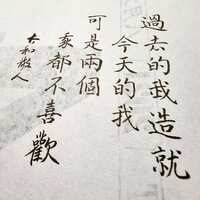 過去的我造就
今天的我
可是兩個
我都不喜歡